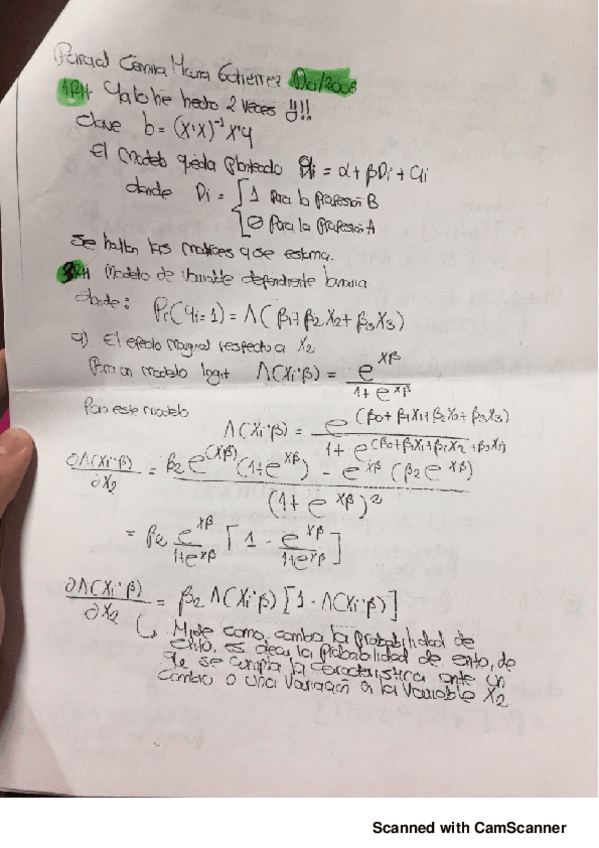 Parcial Camila Maura Gutierrez Dic/2008
1RH Ya lo he hecho 2 veces !!!
Clave b = (X'X)⁻¹ X'y
El modelo queda planteado Yi = α + βDi + Ui
donde Di = [1 para la profesión B
[0 para la profesión A
Se hallan las matrices y se estima.
3RH Modelo de variable dependiente binaria
donde: Pr(Yi=1) = Λ(β1+β2X2+β3X3)
a) El efecto marginal respecto a X2
Para un modelo logit Λ(Xi'β) = e^Xβ / 1+e^Xβ
Para este modelo
Λ(Xi'β) = e^(β0+β1X1+β2X2+β3X3) / 1+e^(β0+β1X1+β2X2+β3X3)
∂Λ(Xi'β)/∂X2 = β2e^(Xβ)(1+e^Xβ) - e^Xβ(β2e^Xβ) / (1+e^Xβ)²
= β2 e^Xβ/1+e^Xβ [1 - e^Xβ/1+e^Xβ]
∂Λ(Xi'β)/∂X2 = β2 Λ(Xi'β)[1-Λ(Xi'β)]
↳ Mide como cambia la probabilidad de
éxito, es decir la probabilidad de exito, de
que se cumpla la característica ante un
cambio o una variación en la variable X2
Scanned with CamScanner